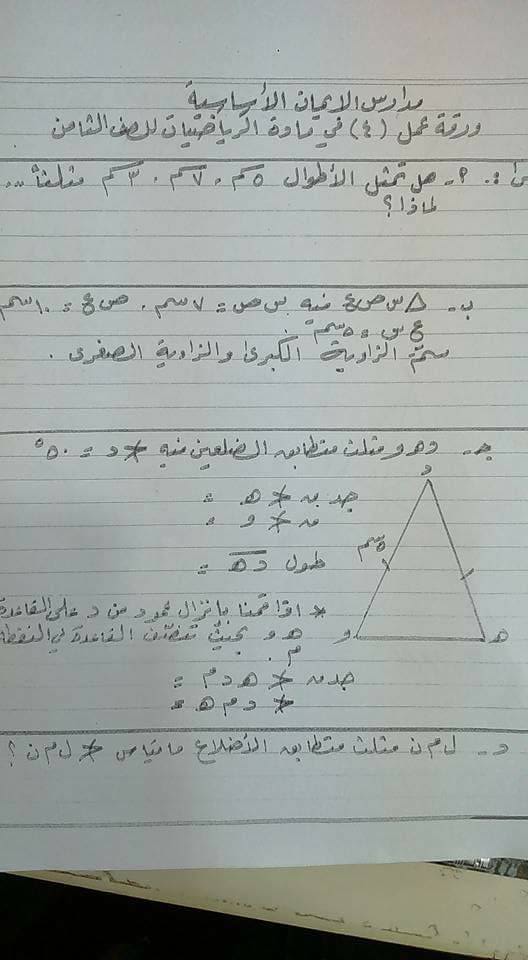 مدارس الايمان الأساسية
ورقة عمل (٤) في مادة الرياضيات للصف الثامن
س١: ٩- هل تمثل الأطوال ٥سم ، ٧سم ، ٣سم مثلثاً ...
لماذا؟
ب- △ س ص ع فيه س ص = ٧سم ، ص ع = ١٠سم
ع س = ٥سم
سمّ الزاوية الكبرى والزاوية الصغرى .
جـ- د هـ و مثلث متطابق الضلعين فيه ∡ د = ٥٠°
د
جد ق ∡ هـ =
ق ∡ و =
٥سم
طول د هـ =
* اذا قمنا بانزال عمود من د على القاعدة
هـ و بحيث تنصف القاعدة في النقطة
و
هـ
م .
جد ق ∡ هـ د م =
∡ د م هـ =
د- ل م ن مثلث متطابق الأضلاع ما قياس ∡ ل م ن ؟